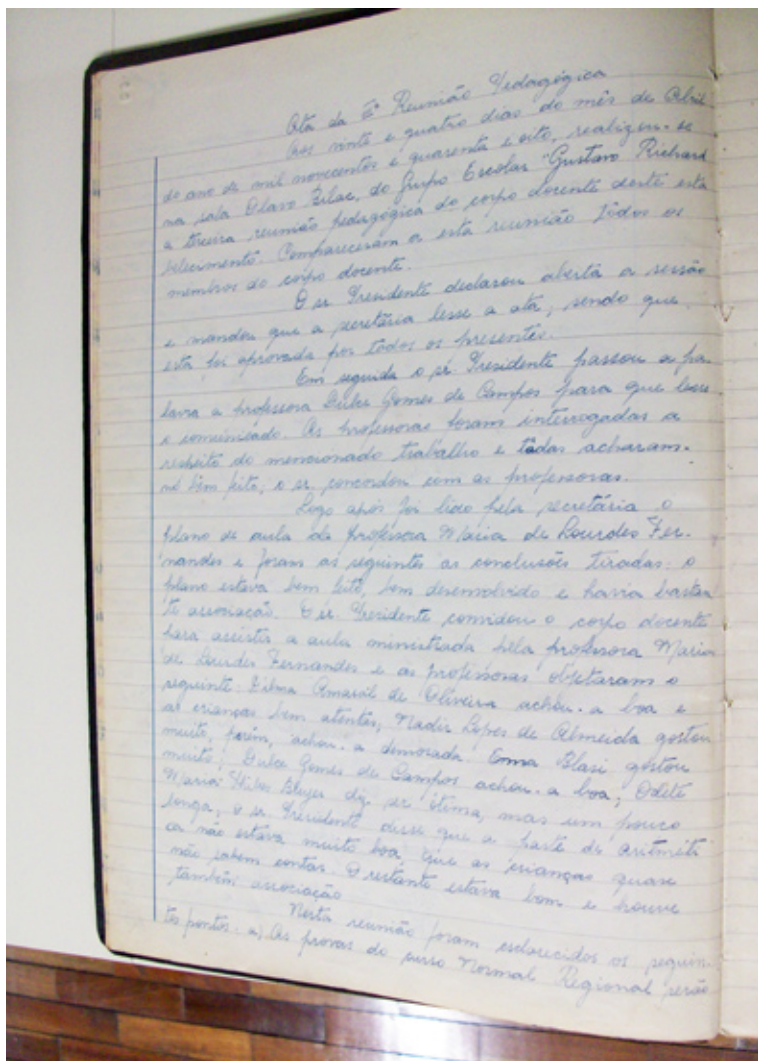 Ata da Reunião Pedagógica
Aos vinte e quatro dias do mês de Abril
do ano de mil novecentos e quarenta e oito, realizou-se
na sala Olavo Bilac, do Grupo Escolar "Gustavo Richard
a terceira reunião pedagógica do corpo docente deste esta
belecimento. Compareceram a esta reunião todos os
membros do corpo docente.
O sr. Presidente declarou aberta a sessão
e mandou que a secretária lesse a ata, sendo que
esta foi aprovada por todos os presentes.
Em seguida o sr. Presidente passou a pa-
lavra a professora Dulce Gomes de Campos para que lesse
o comunicado. As professoras foram interrogadas a
respeito do mencionado trabalho e todas acharam-
no bem feito, o sr. concordou com as professoras.
Logo após foi lido pela secretária o
plano de aula da professora Maria de Lourdes Fer-
nandes e foram as seguintes as conclusões tiradas: o
plano estava bem feito, bem desenvolvido e havia bastan
te associação. O sr. Presidente convidou o corpo docente
para assistir a aula ministrada pela professora Maria
de Lourdes Fernandes e as professoras objetaram o
seguinte: Amaral de Oliveira achou-a boa e
as crianças bem atentas, Nadir Lopes de Almeida gostou
muito, porém, achou-a demorada. Enna Blasi gostou
muito; Dulce Gomes de Campos achou-a boa; Odete
Maria diz ser ótima, mas um pouco
longa; o sr. Presidente disse que a parte de aritméti
ca não estava muito boa, que as crianças quase
não sabem contar. O restante estava bom e houve
também associação
Nesta reunião foram esclarecidos os seguin-
tes pontos: a) As provas do curso Normal Regional serão